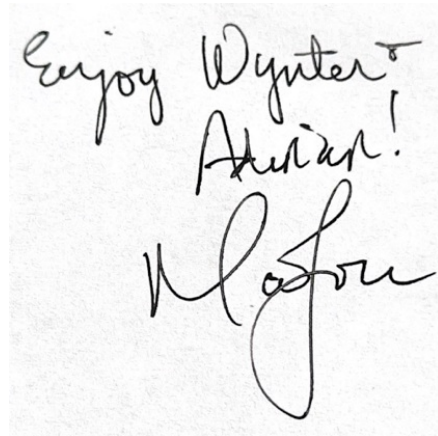 Enjoy Wynter &
Adrian!